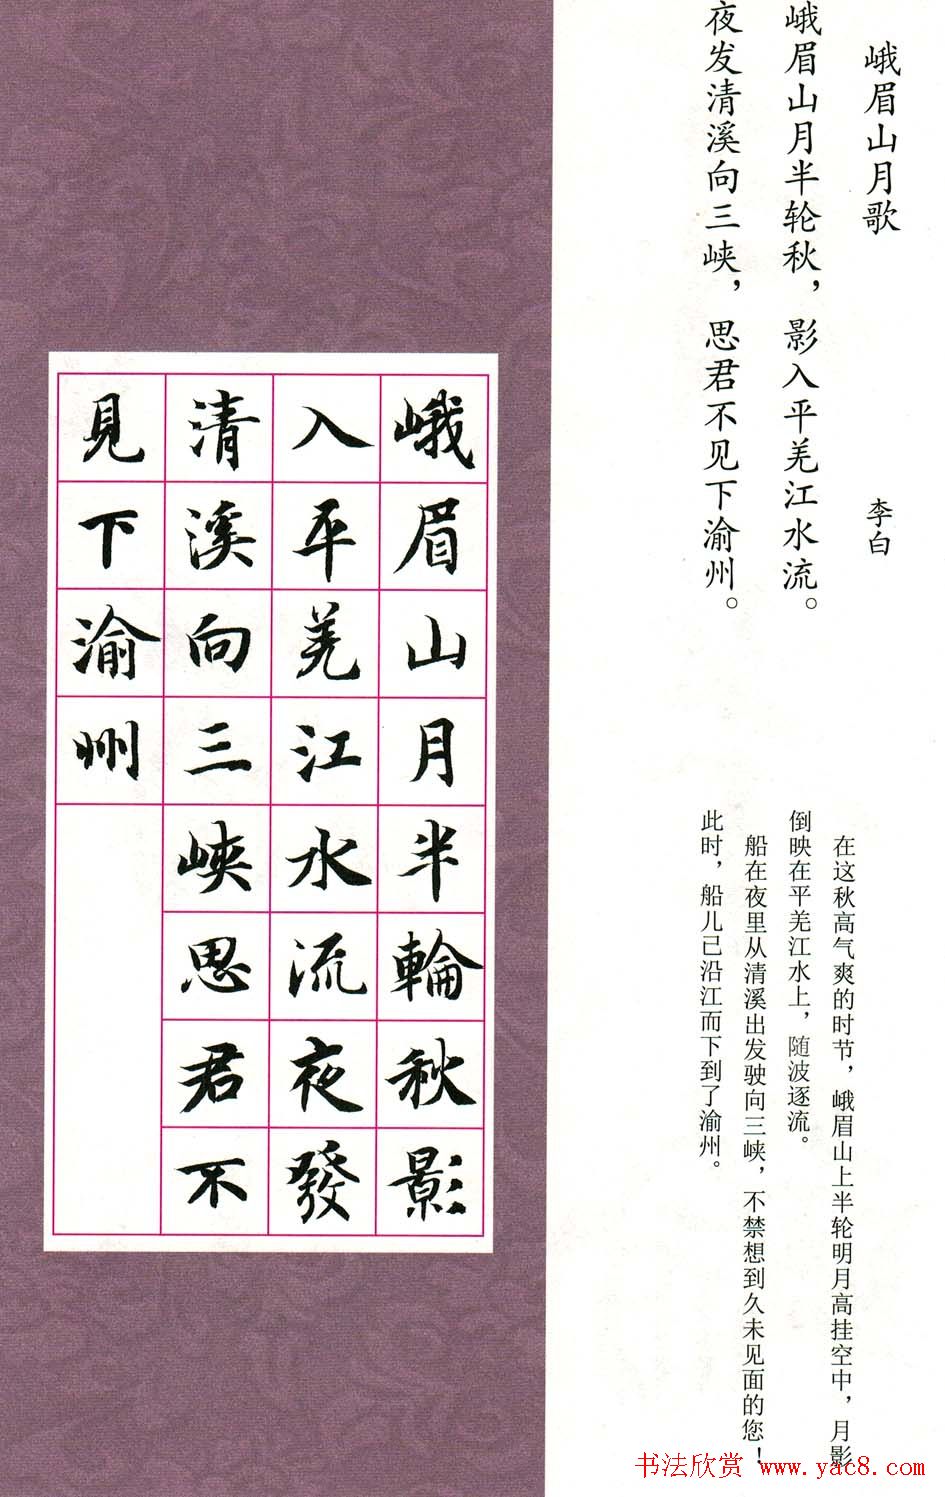 峨眉山月歌
李白
峨眉山月半轮秋，影入平羌江水流。
夜发清溪向三峡，思君不见下渝州。
在这秋高气爽的时节，峨眉山上半轮明月高挂空中，月影
倒映在平羌江水上，随波逐流。
船在夜里从清溪出发驶向三峡，不禁想到久未见面的您！
此时，船儿已沿江而下到了渝州。
峨眉山月半輪秋影
入平羌江水流夜發
清溪向三峽思君不
見下渝州
书法欣赏 www.yac8.com